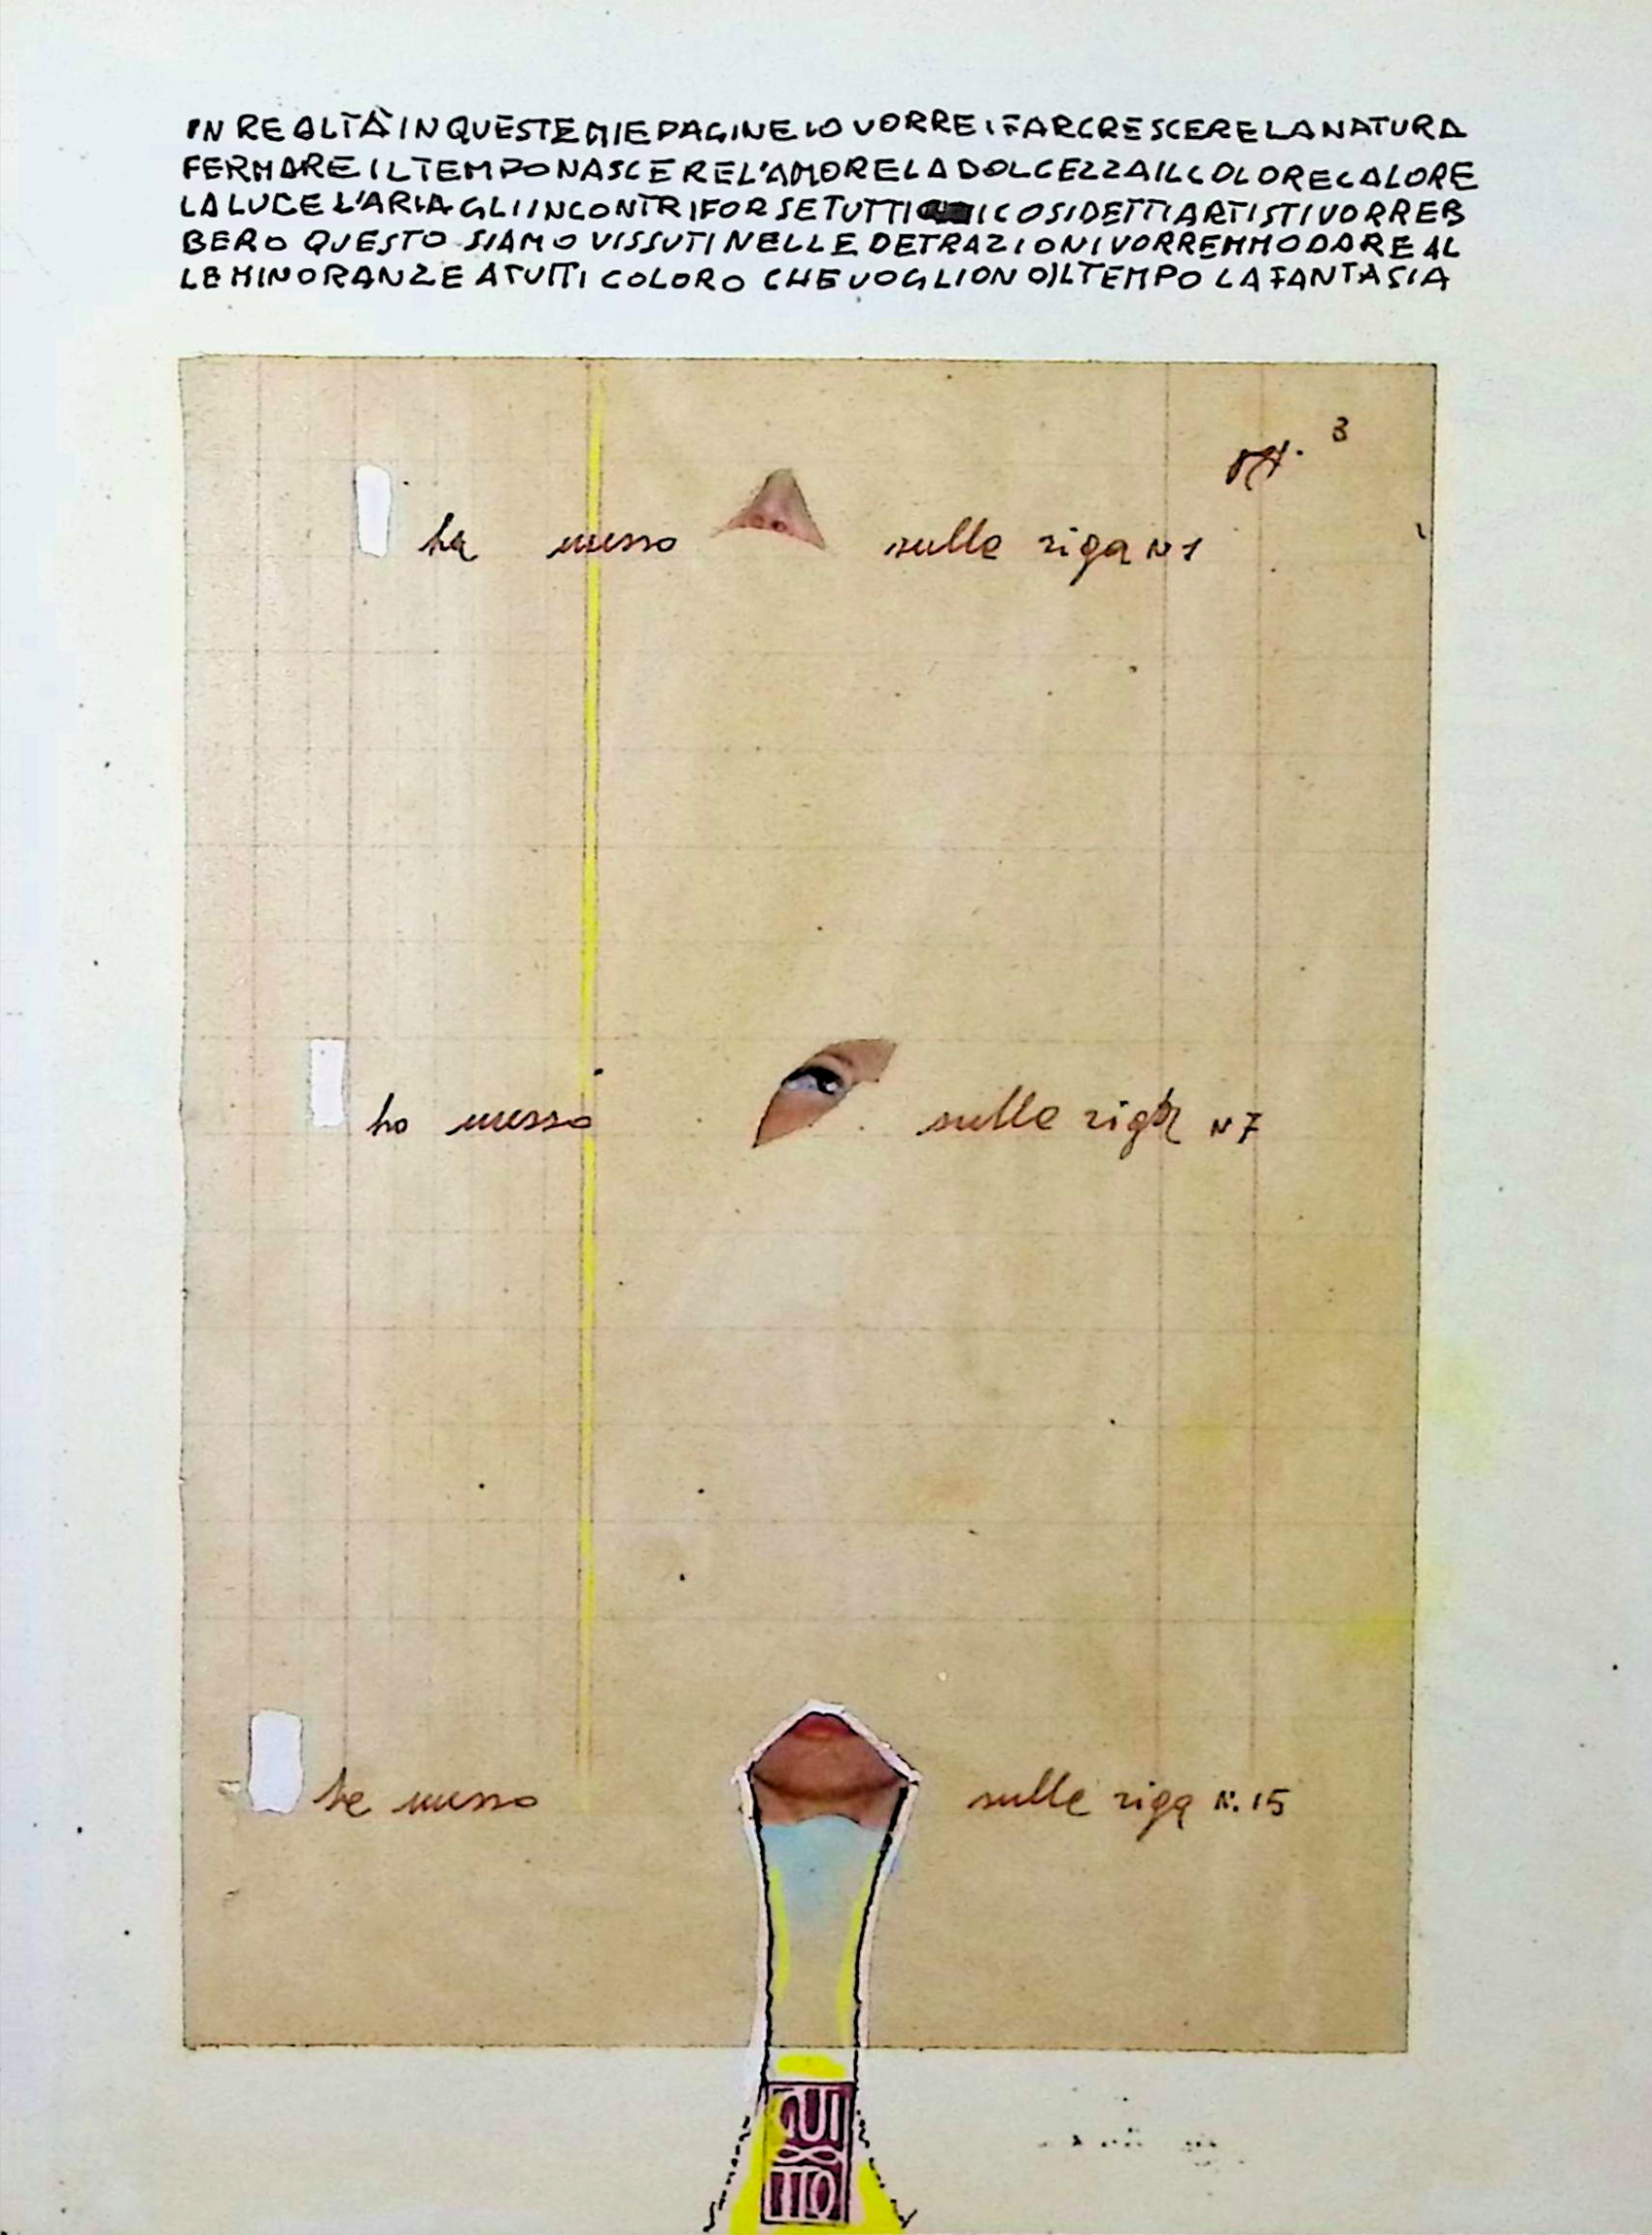 IN REALTÀ IN QUESTE MIE PAGINE IO VORREI FAR CRESCERE LA NATURA
FERMARE IL TEMPO NASCERE L'AMORE LA DOLCEZZA IL COLORE CALORE
LA LUCE L'ARIA GLI INCONTRI FORSE TUTTI I COSIDETTI ARTISTI VORREB
BERO QUESTO SIAMO VISSUTI NELLE DETRAZIONI VORREMMO DARE AL
LE MINORANZE A TUTTI COLORO CHE VOGLIONO IL TEMPO LA FANTASIA
3
ha messo sulle riga N 1
ho messo sulle riga N 7
he messo sulle riga N. 15
QUI